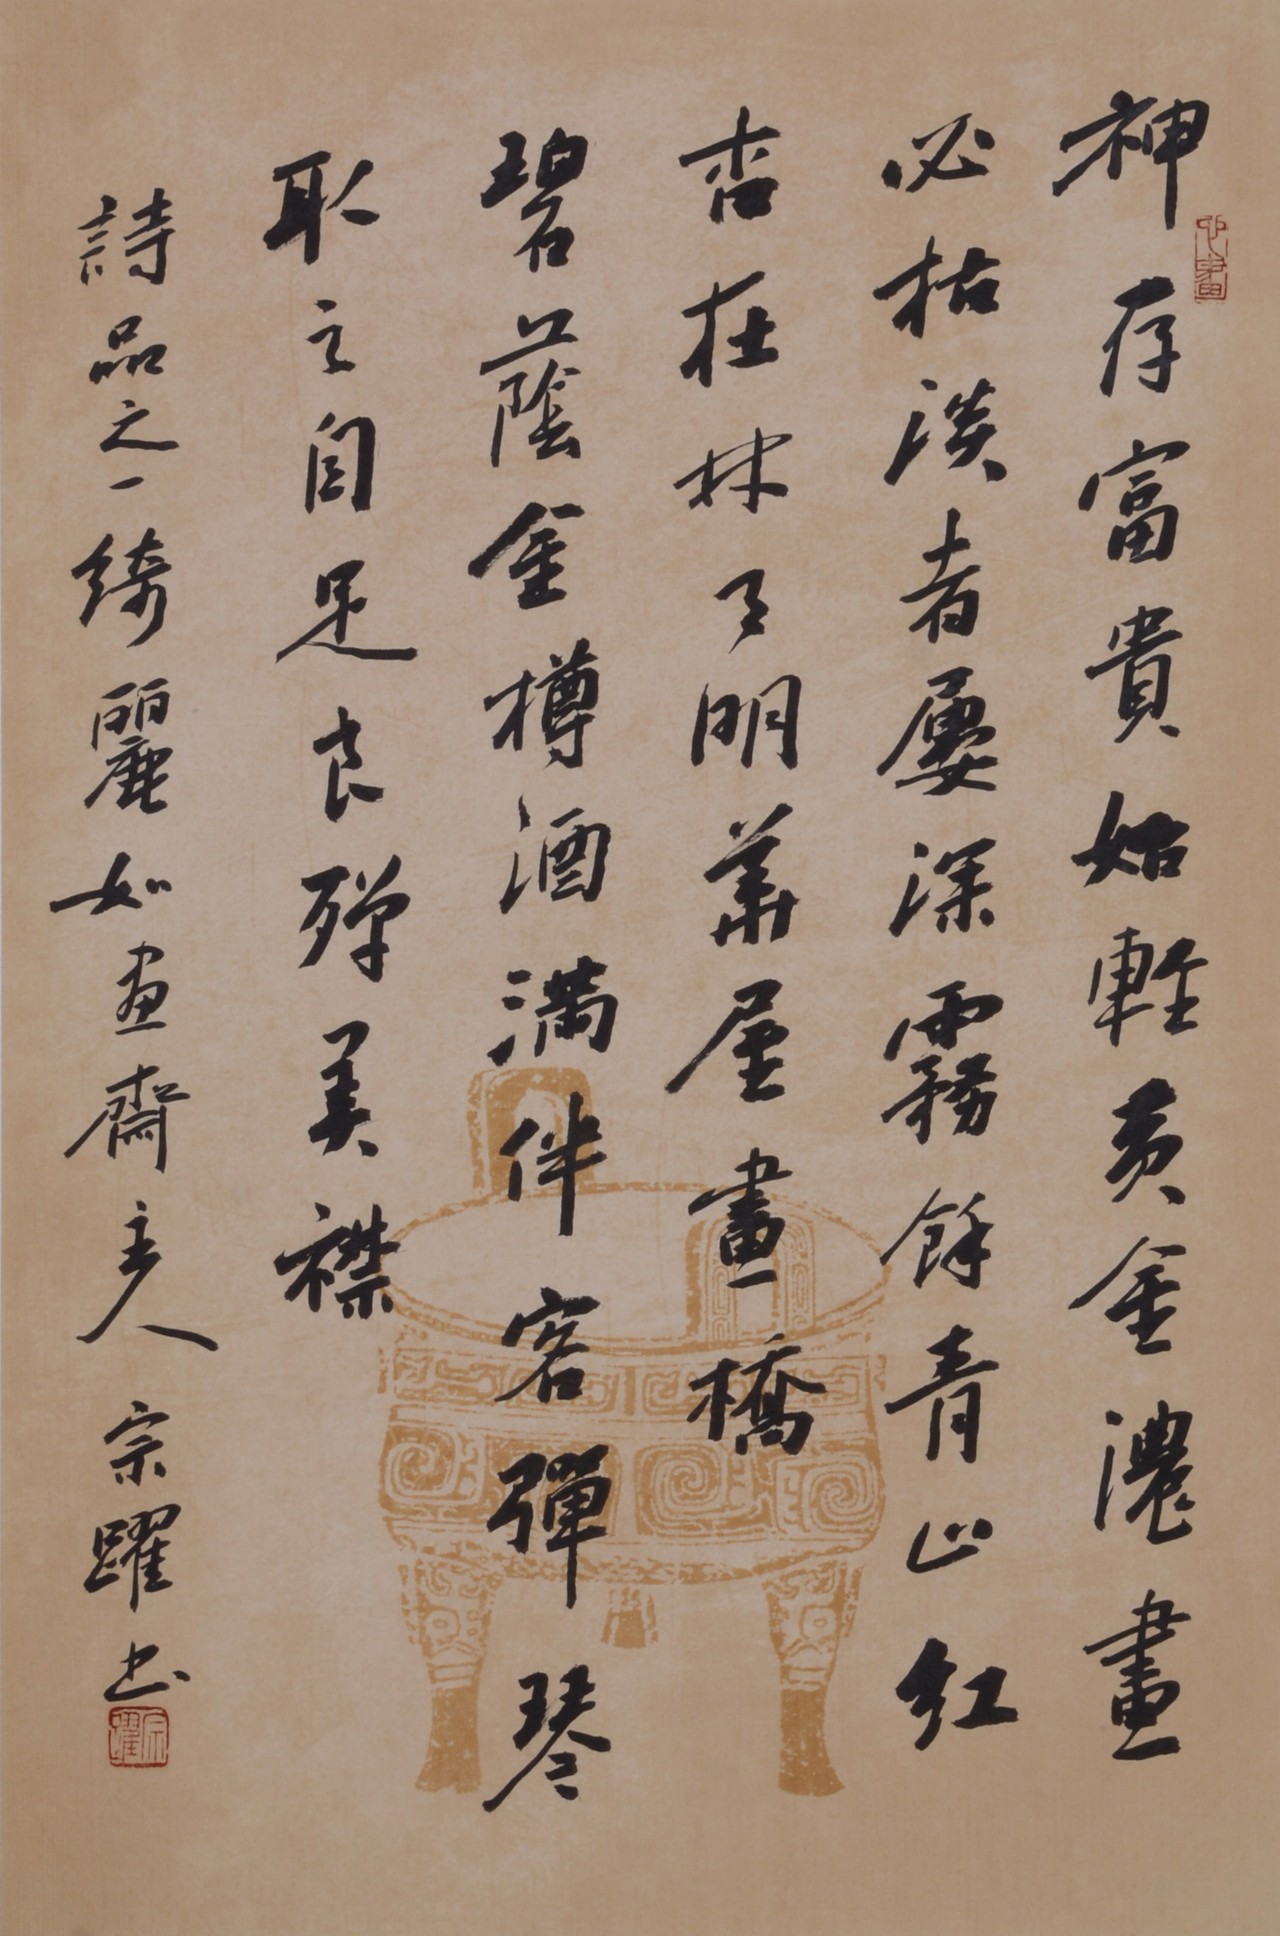 神存富貴始輕黃金濃畫
必枯淡者屢深霧餘青山紅
杏在林月明華屋畫橋
碧蔭金樽酒滿伴客彈琴
取之自足良殫美襟
詩品之一綺麗如画齋主人宗躍书
宗躍